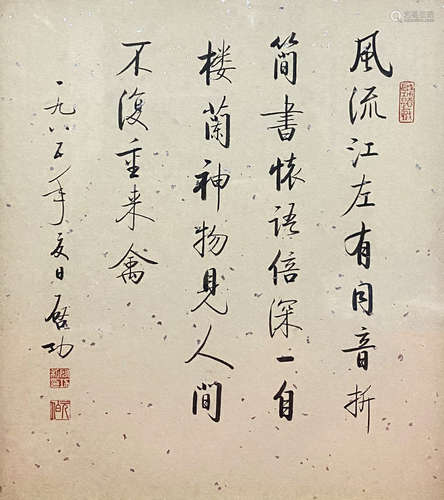 風流江左有同音折
簡書懷語倍深一自
楼蘭神物見人間
不復重来禽
一九八五年夏日啓功